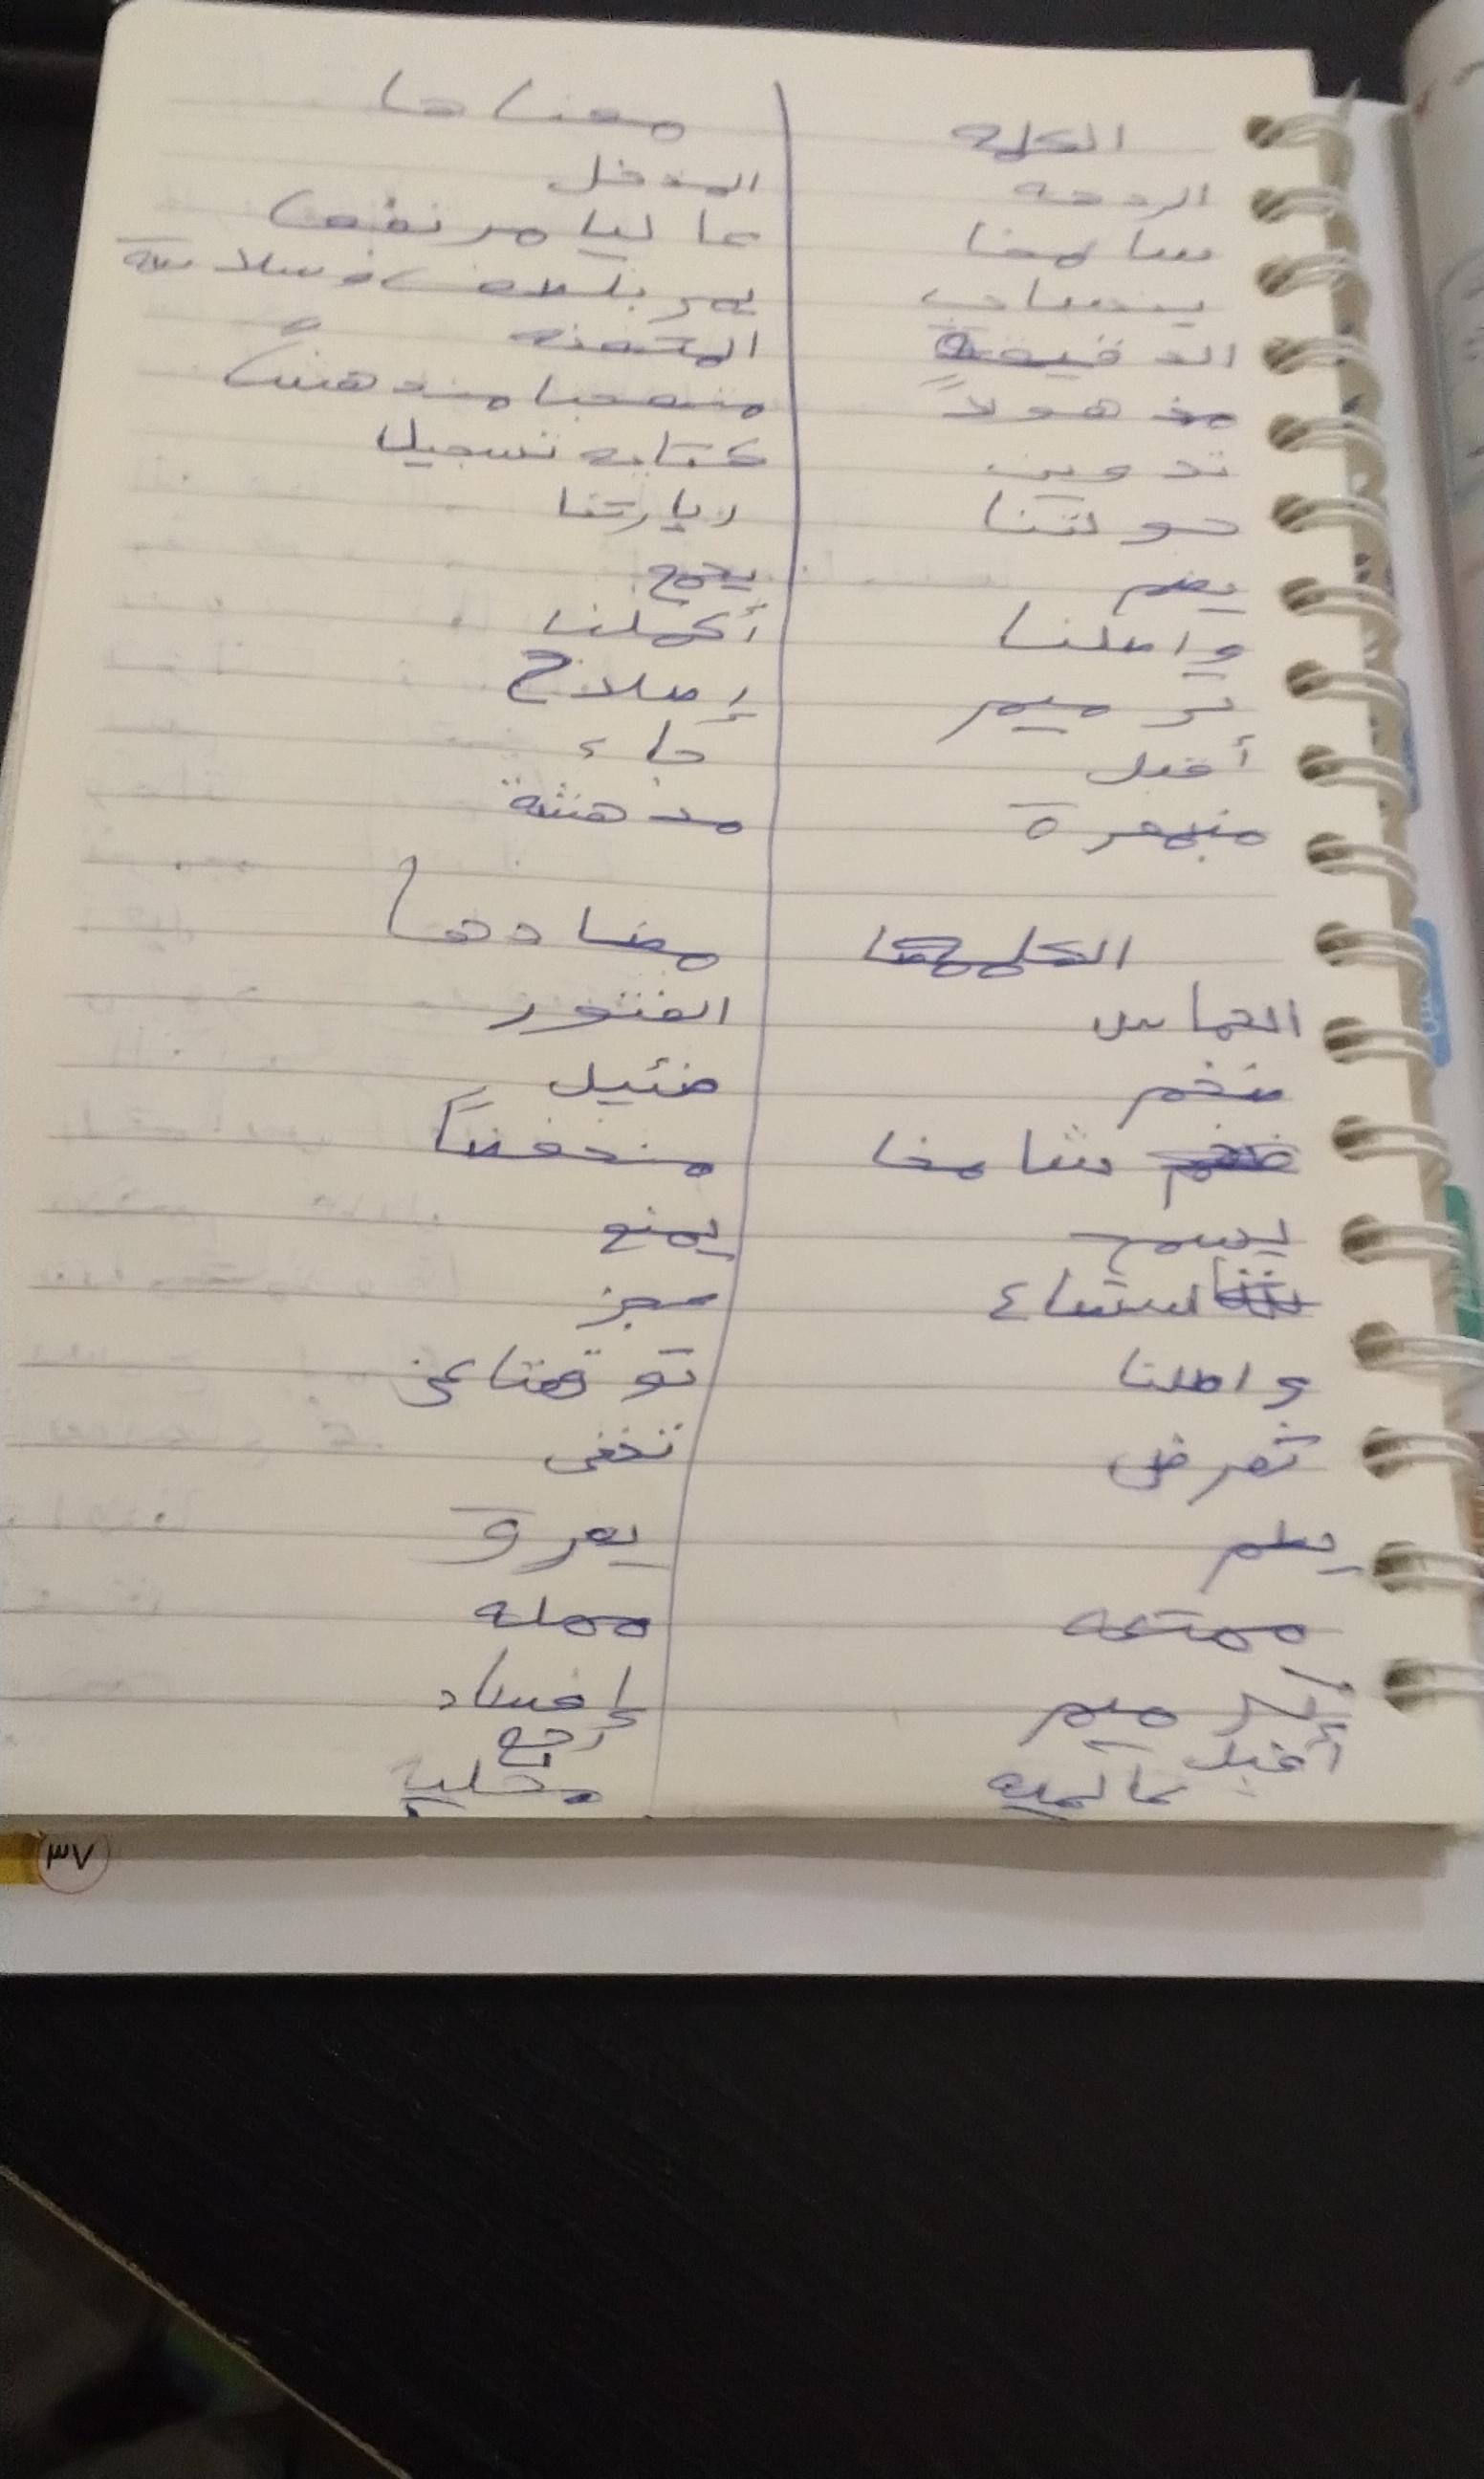 الكلمه معناها
الردهه المدخل
شامخا عاليا مرتفعا
ينساب يمر بلطف وسلاسة
الدقيقة المتقنه
مذهولاً متعجبا مندهشاً
تدوين كتابه تسجيل
جولتنا زيارتنا
يضم يجمع
واصلنا أكملنا
ترميم إصلاح
أقبل جاء
منبهرة مدهشة
الكلمه مضادها
الحماس الفتور
ضخم ضئيل
شامخا منخفضاً
يسمح يمنع
استطاع عجز
واصلنا توقفنا عن
تعرض تخفى
يمله
ممتعه ممله
ترميم إفساد
أقبل رجع
عالميه محليه
٣٧